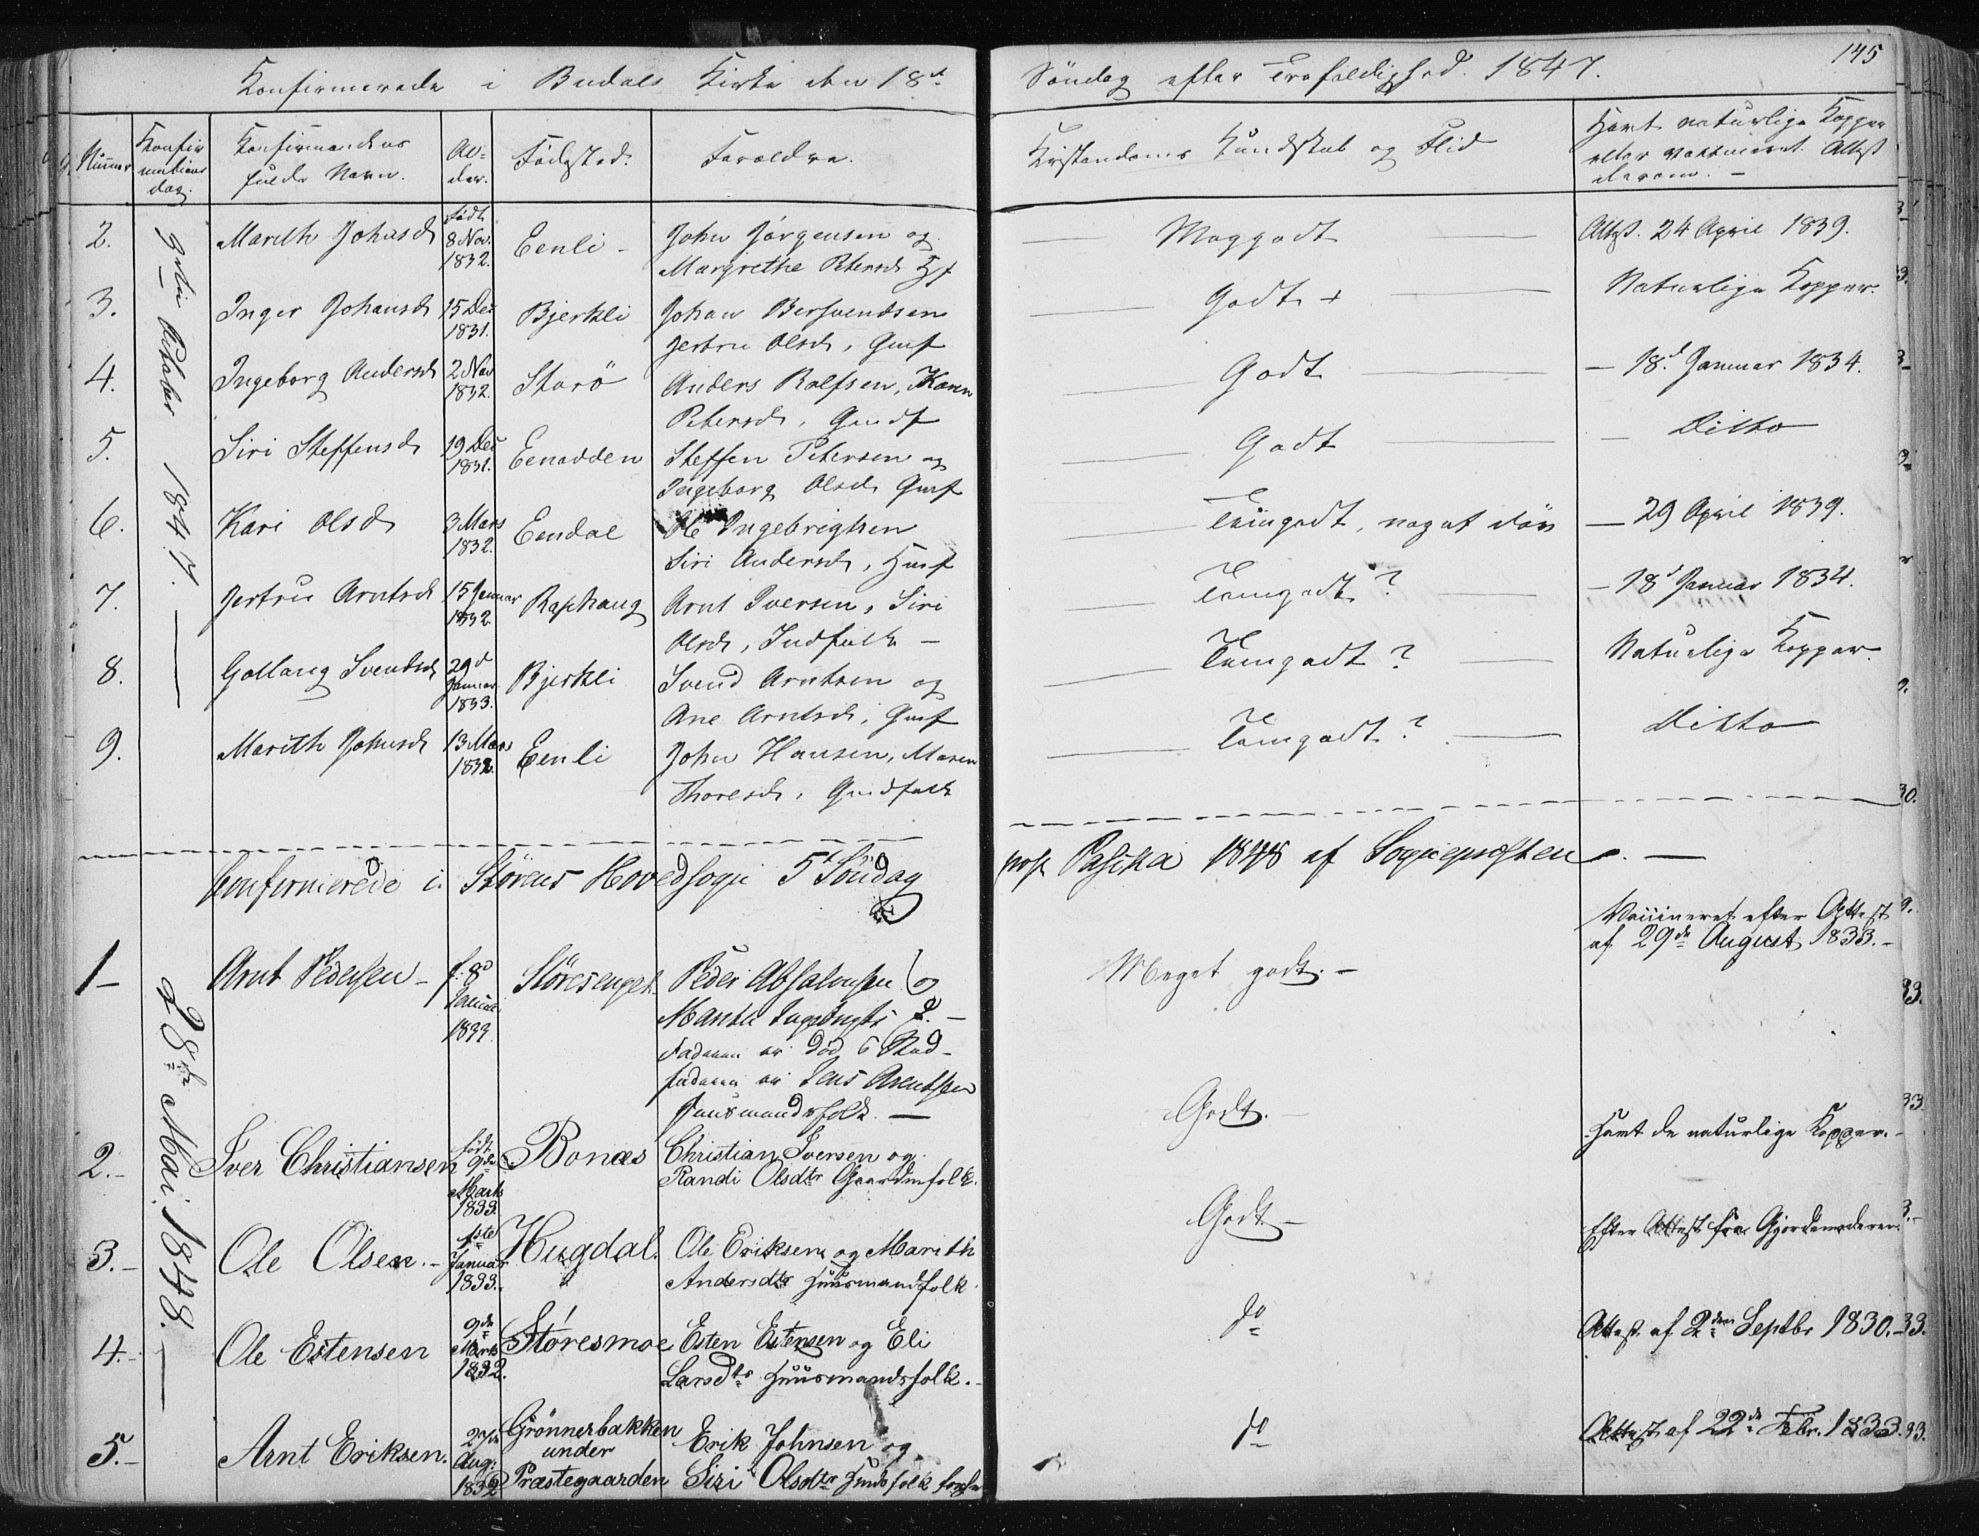 145
Konfirmerede i Budals Kirke den 18de Søndag efter Trefoldighed. 1847.
Nummer
Konfirmations dag.
Konfirmandens fulde Navn.
Alder.
Fødested.
Foreldre.
Kristendoms Kundskab og Flid
Havt naturlige Kopper eller vaksineret. Attest derom. -
9de Oktober 1847. -
2. Marith Johnsd født 8 Nov. 1832. Eenli - John Jørgensen og Margrethe Petersd Meggodt Attest. 24 April 1839.
3. Inger Johansd 15 Dec 1831. Bjerkli Johan Bersvendsen Jertru Olsd, Gmf Godt + Naturlige Kopper.
4. Ingeborg Andersd 2 Nov 1832. Storø Anders Rolfsen, Karen Petersd, Gmdf Godt - 18d Januar 1834.
5. Siri Steffensd 19 Dec 1831. Eenodden Steffen Petersen og Ingeborg Olsd Gmf Godt - Ditto
6. Kari Olsd 3 Mars 1832. Eendal Ole Ingebrigtsen Siri Andersd, Husf Temgodt, noget - 29 April 1839.
7. Jertru Arntsd 15 Januar 1832 Raphaug Arnt Iversen, Siri Olsd, Indfolk - Temgodt? - 18d Januar 1834.
8. Gollaug Svendsd 29d Januar 1833. Bjerkli Svend Arntsen og Ane Arntsd, Gmf Temgodt? Naturlige Kopper.
9. Marith Johnsd 13 Mars 1832. Eenli John Hansen, Maren Thoresd, Gmdfolk Temgodt? Ditto
Confirmerede i Størens Hovedsogn 5t Søndag post Pascha 1848 af Sognepresten. -
28de Mai. 1848. -
1 - Arnt Pedersen - f. 8d Januar Støresenget Peder Absalonsen og Marith Ingebrigts D. - Faderen er død & Stedfaderen er Jens Arentsen Huusmandsfolk. - Meget godt. - Vaccineret efter Attest af 29de August 1833. -
2. - Iver Christiansen født 9de Marts 1833. Bonæs Christian Iversen og Randi Olsdtr Gaardmfolk. Godt. Havt de naturlige Kopper. -
3. - Ole Olsen. - 1ste Januar 1833. Hugdal. Ole Eriksen og Marith Andersdtr Huusmandsfolk. Godt - Efter Attest fra Gjordemoderen.
4. - Ole Estensen 9de Marts 1832. Støresmoe Esten Estensen og Eli Larsdtr Huusmandsfolk. - do Attest af 2den Septbr 1830. -
5. - Arnt Eriksen. 27de Aug: 1832 Grønnesbakken under Præstegaarden Erik Johnsen og Siri Olsdtr do Attest af 22de Febr. 1833.